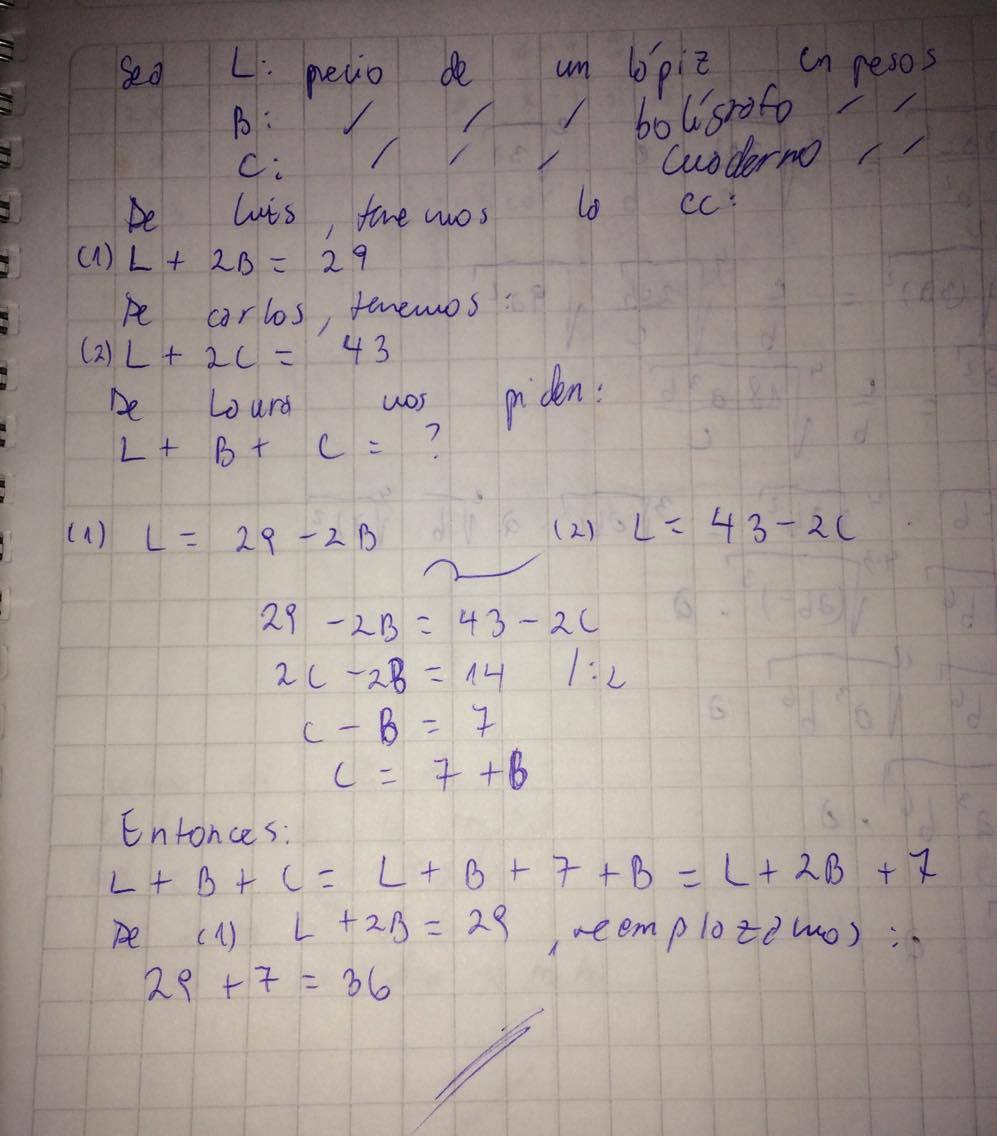 Sea L: precio de un lápiz en pesos
B: / / / bolígrafo / /
C: / / / Cuaderno / /
De Luis, tenemos la ec:
(1) L + 2B = 29
De carlos, tenemos:
(2) L + 2C = 43
De Laura nos piden:
L + B + C = ?
(1) L = 29 - 2B (2) L = 43 - 2C
29 - 2B = 43 - 2C
2C - 2B = 14 /:2
C - B = 7
C = 7 + B
Entonces:
L + B + C = L + B + 7 + B = L + 2B + 7
De (1) L + 2B = 29, reemplazamos:
29 + 7 = 36